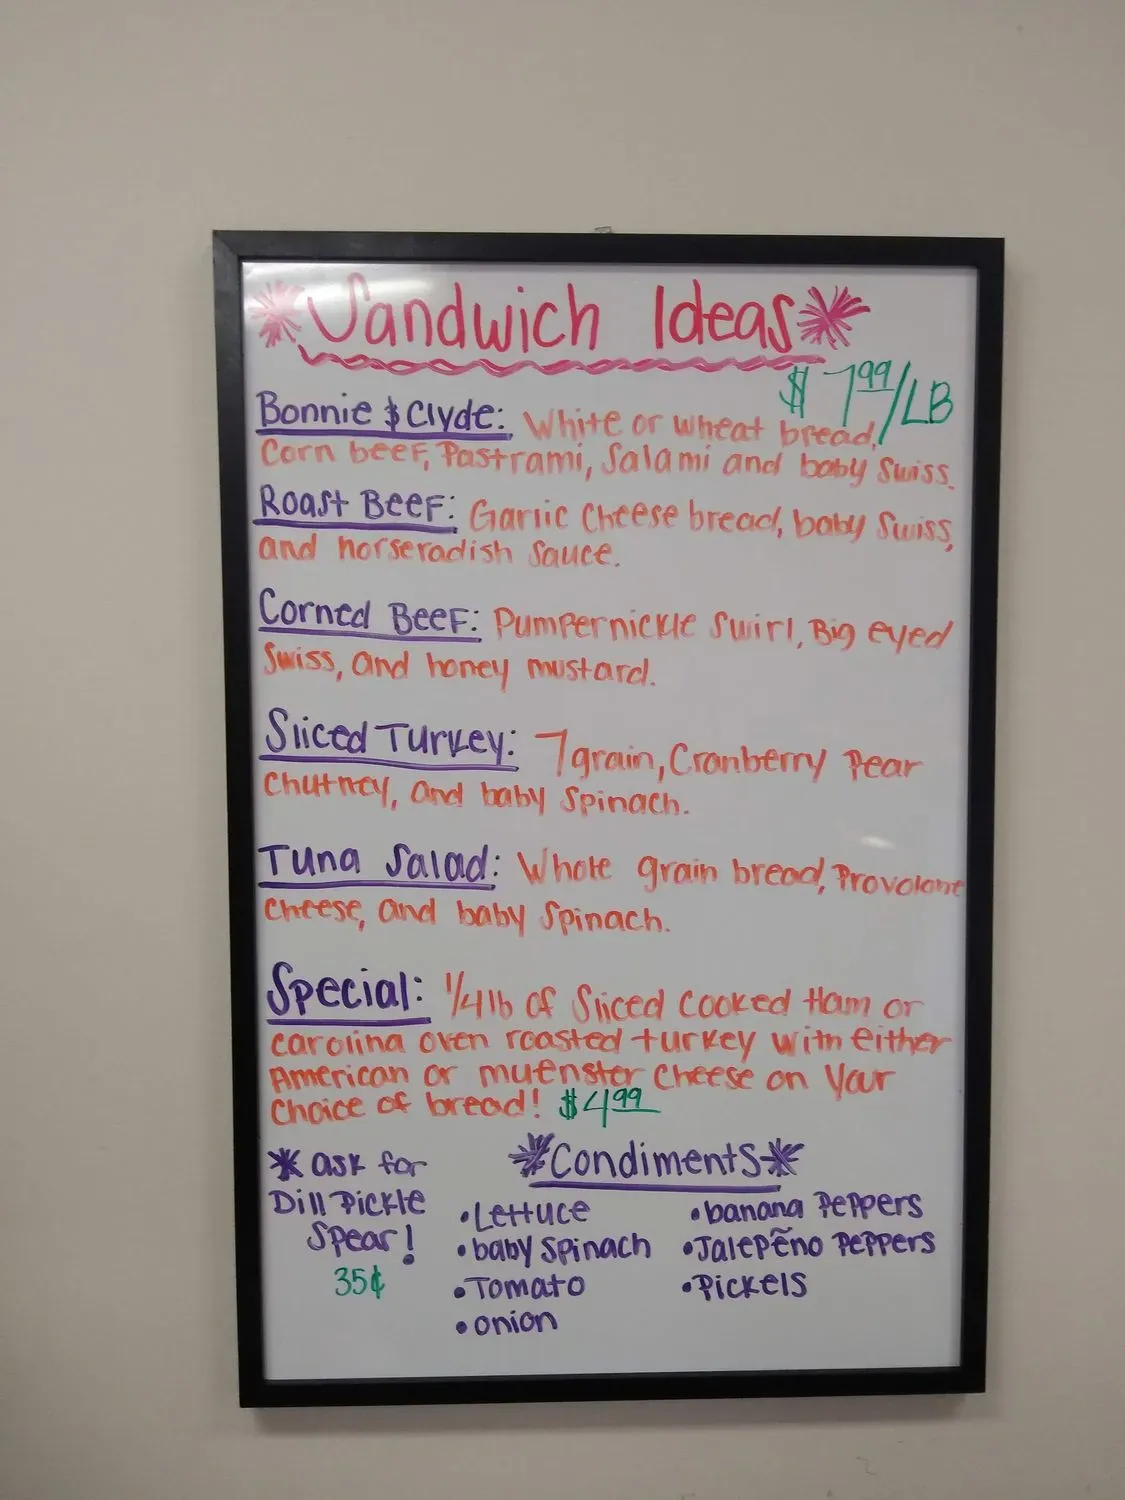 Sandwich Ideas
$7.99/LB
Bonnie & Clyde: White or wheat bread,
Corn beef, Pastrami, Salami and baby Swiss.
Roast Beef: Garlic Cheese bread, baby Swiss,
and horseradish Sauce.
Corned Beef: Pumpernickle Swirl, Big eyed
Swiss, and honey mustard.
Sliced Turkey: 7 grain, Cranberry Pear
Chutney, and baby Spinach.
Tuna Salad: Whole grain bread, Provolone
Cheese, and baby Spinach.
Special: 1/4 lb of Sliced Cooked Ham or
carolina oven roasted turkey with either
American or muenster Cheese on Your
Choice of bread! $4.99
* ask for
Dill Pickle
Spear!
35¢
*Condiments*
•Lettuce
•baby Spinach
•Tomato
•onion
•banana Peppers
•Jalepeño Peppers
•Pickels